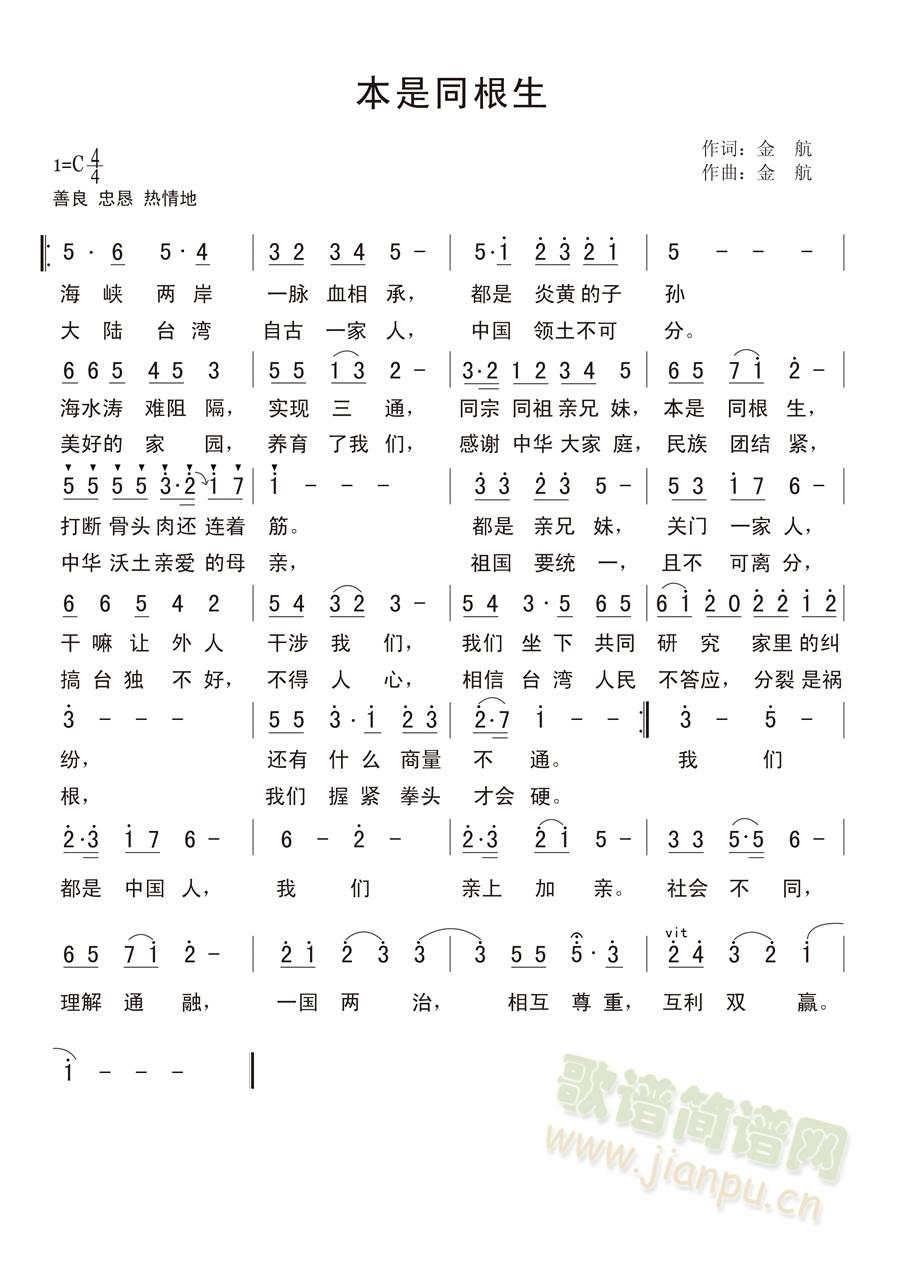 本是同根生
作词：金 航
1=C 4/4
作曲：金 航
善良 忠恳 热情地
5 · 6 5 · 4 3 2 3 4 5 - 5 · 1 2 3 2 1 5 - - -
海 峡 两 岸 一脉 血相 承， 都是 炎黄的子 孙
大 陆 台 湾 自古 一家 人， 中国 领土不可 分。
6 6 5 4 5 3 5 5 1 3 2 - 3 · 2 1 2 3 4 5 6 5 7 1 2 -
海水涛 难阻 隔， 实现 三 通， 同宗 同祖亲兄 妹， 本是 同根 生，
美好的 家 园， 养育 了我 们， 感谢 中华大家 庭， 民族 团结 紧，
5 5 5 5 3 · 2 1 7 1 - - - 3 3 2 3 5 - 5 3 1 7 6 -
打断 骨头肉还 连着 筋。 都是 亲兄 妹， 关门 一家 人，
中华 沃土亲爱 的母 亲， 祖国 要统 一， 且不 可离 分，
6 6 5 4 2 5 4 3 2 3 - 5 4 3 · 5 6 5 6 1 2 0 2 2 1 2
干 嘛 让 外 人 干涉 我 们， 我们 坐 下 共同 研 究 家里的纠
搞 台 独 不 好， 不得 人 心， 相信 台 湾 人民 不答应， 分裂是祸
3 - - - 5 5 3 · 1 2 3 2 · 7 1 - - 3 - 5 -
纷， 还有 什 么 商量 不 通。 我 们
根， 我们 握 紧 拳头 才会 硬。
2 · 3 1 7 6 - 6 - 2 - 2 · 3 2 1 5 - 3 3 5 · 5 6 -
都是 中国 人， 我 们 亲上 加 亲。 社会 不 同，
vit
6 5 7 1 2 - 2 1 2 3 3 3 5 5 5 · 3 2 4 3 2 1
理解 通 融， 一国 两 治， 相互 尊 重， 互利 双 赢。
1 - - -
歌谱简谱网
www.jianpu.cn